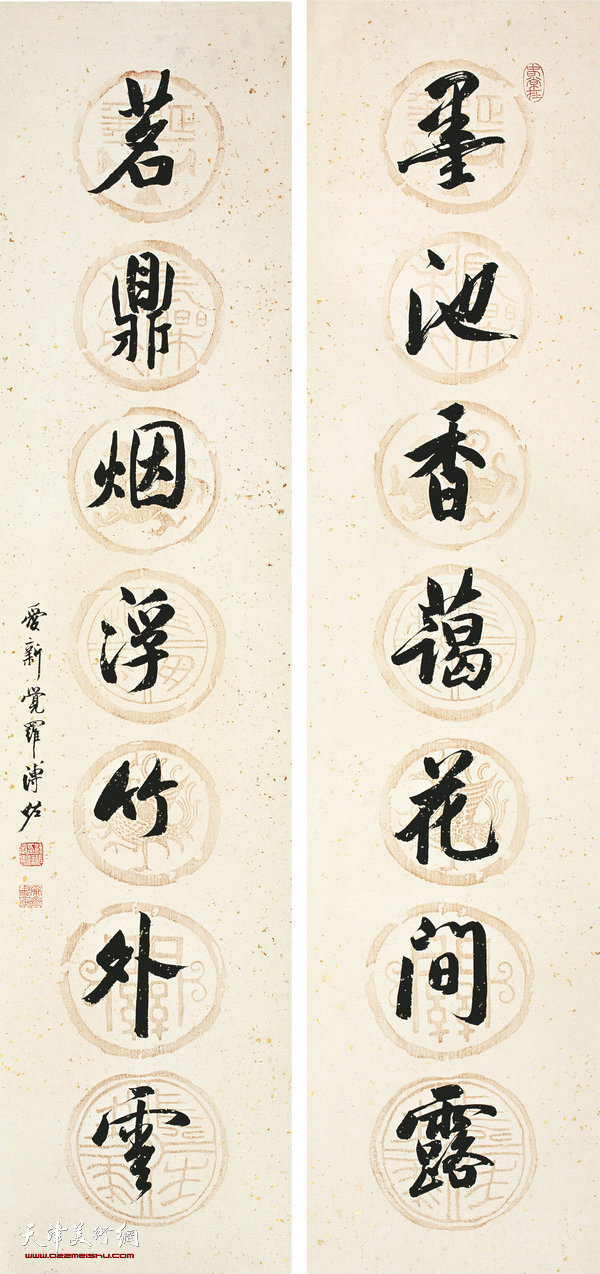 墨池香蔼花间露
茗鼎烟浮竹外雲
愛新覚羅溥佐
天津美術網
www.022meishu.com